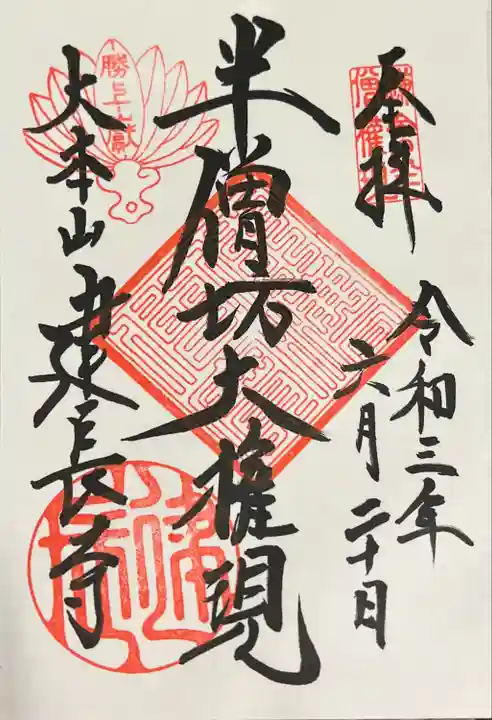 奉拝
令和三年
六月二十日
半僧坊大権現
勝上献
大本山建長寺